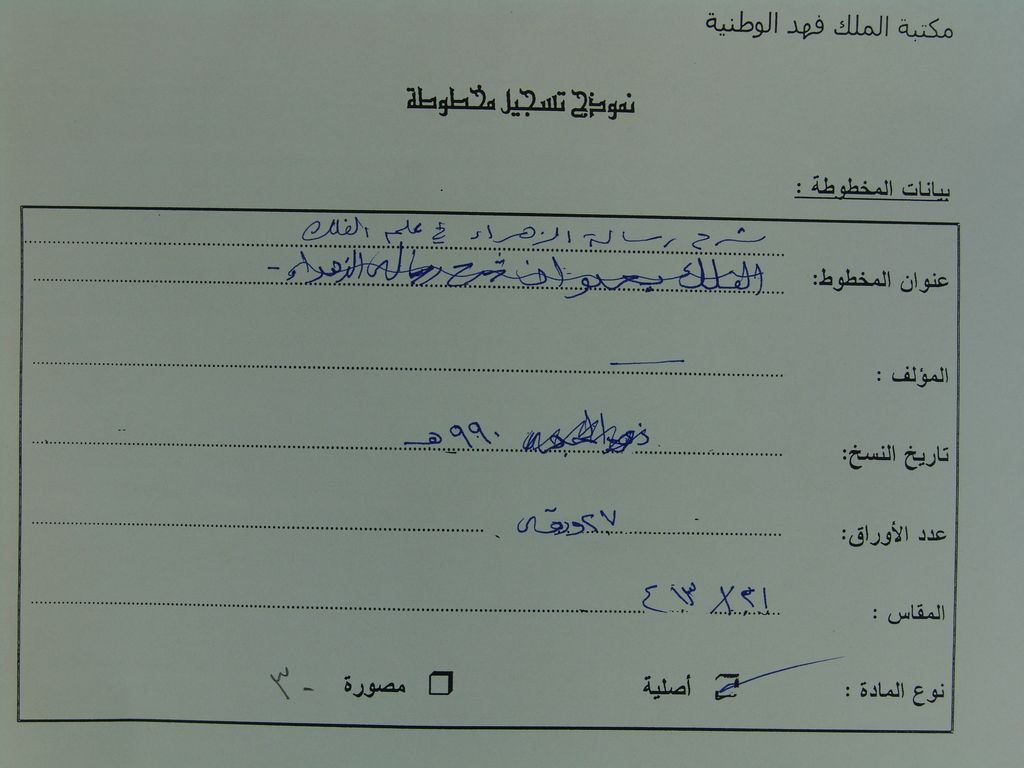 مكتبة الملك فهد الوطنية
نموذج تسجيل مخطوطة
بيانات المخطوطة :
شرح رسالة الزهراء في علم الفلك
عنوان المخطوط: الفلك بعنوان شرح رسالة الزهراء -
المؤلف : —
تاريخ النسخ: ٩٩٠ هـ
عدد الأوراق: ٢٧ ورقة
المقاس :
نوع المادة : أصلية مصورة - ٣